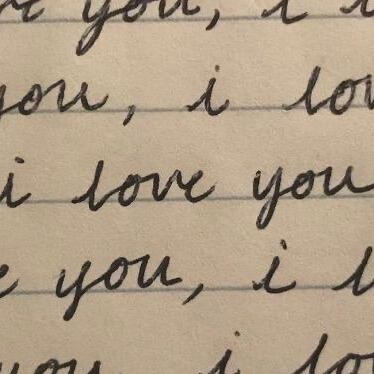 ve you, i l
you, i lov
i love you
e you, i l
you, i lo